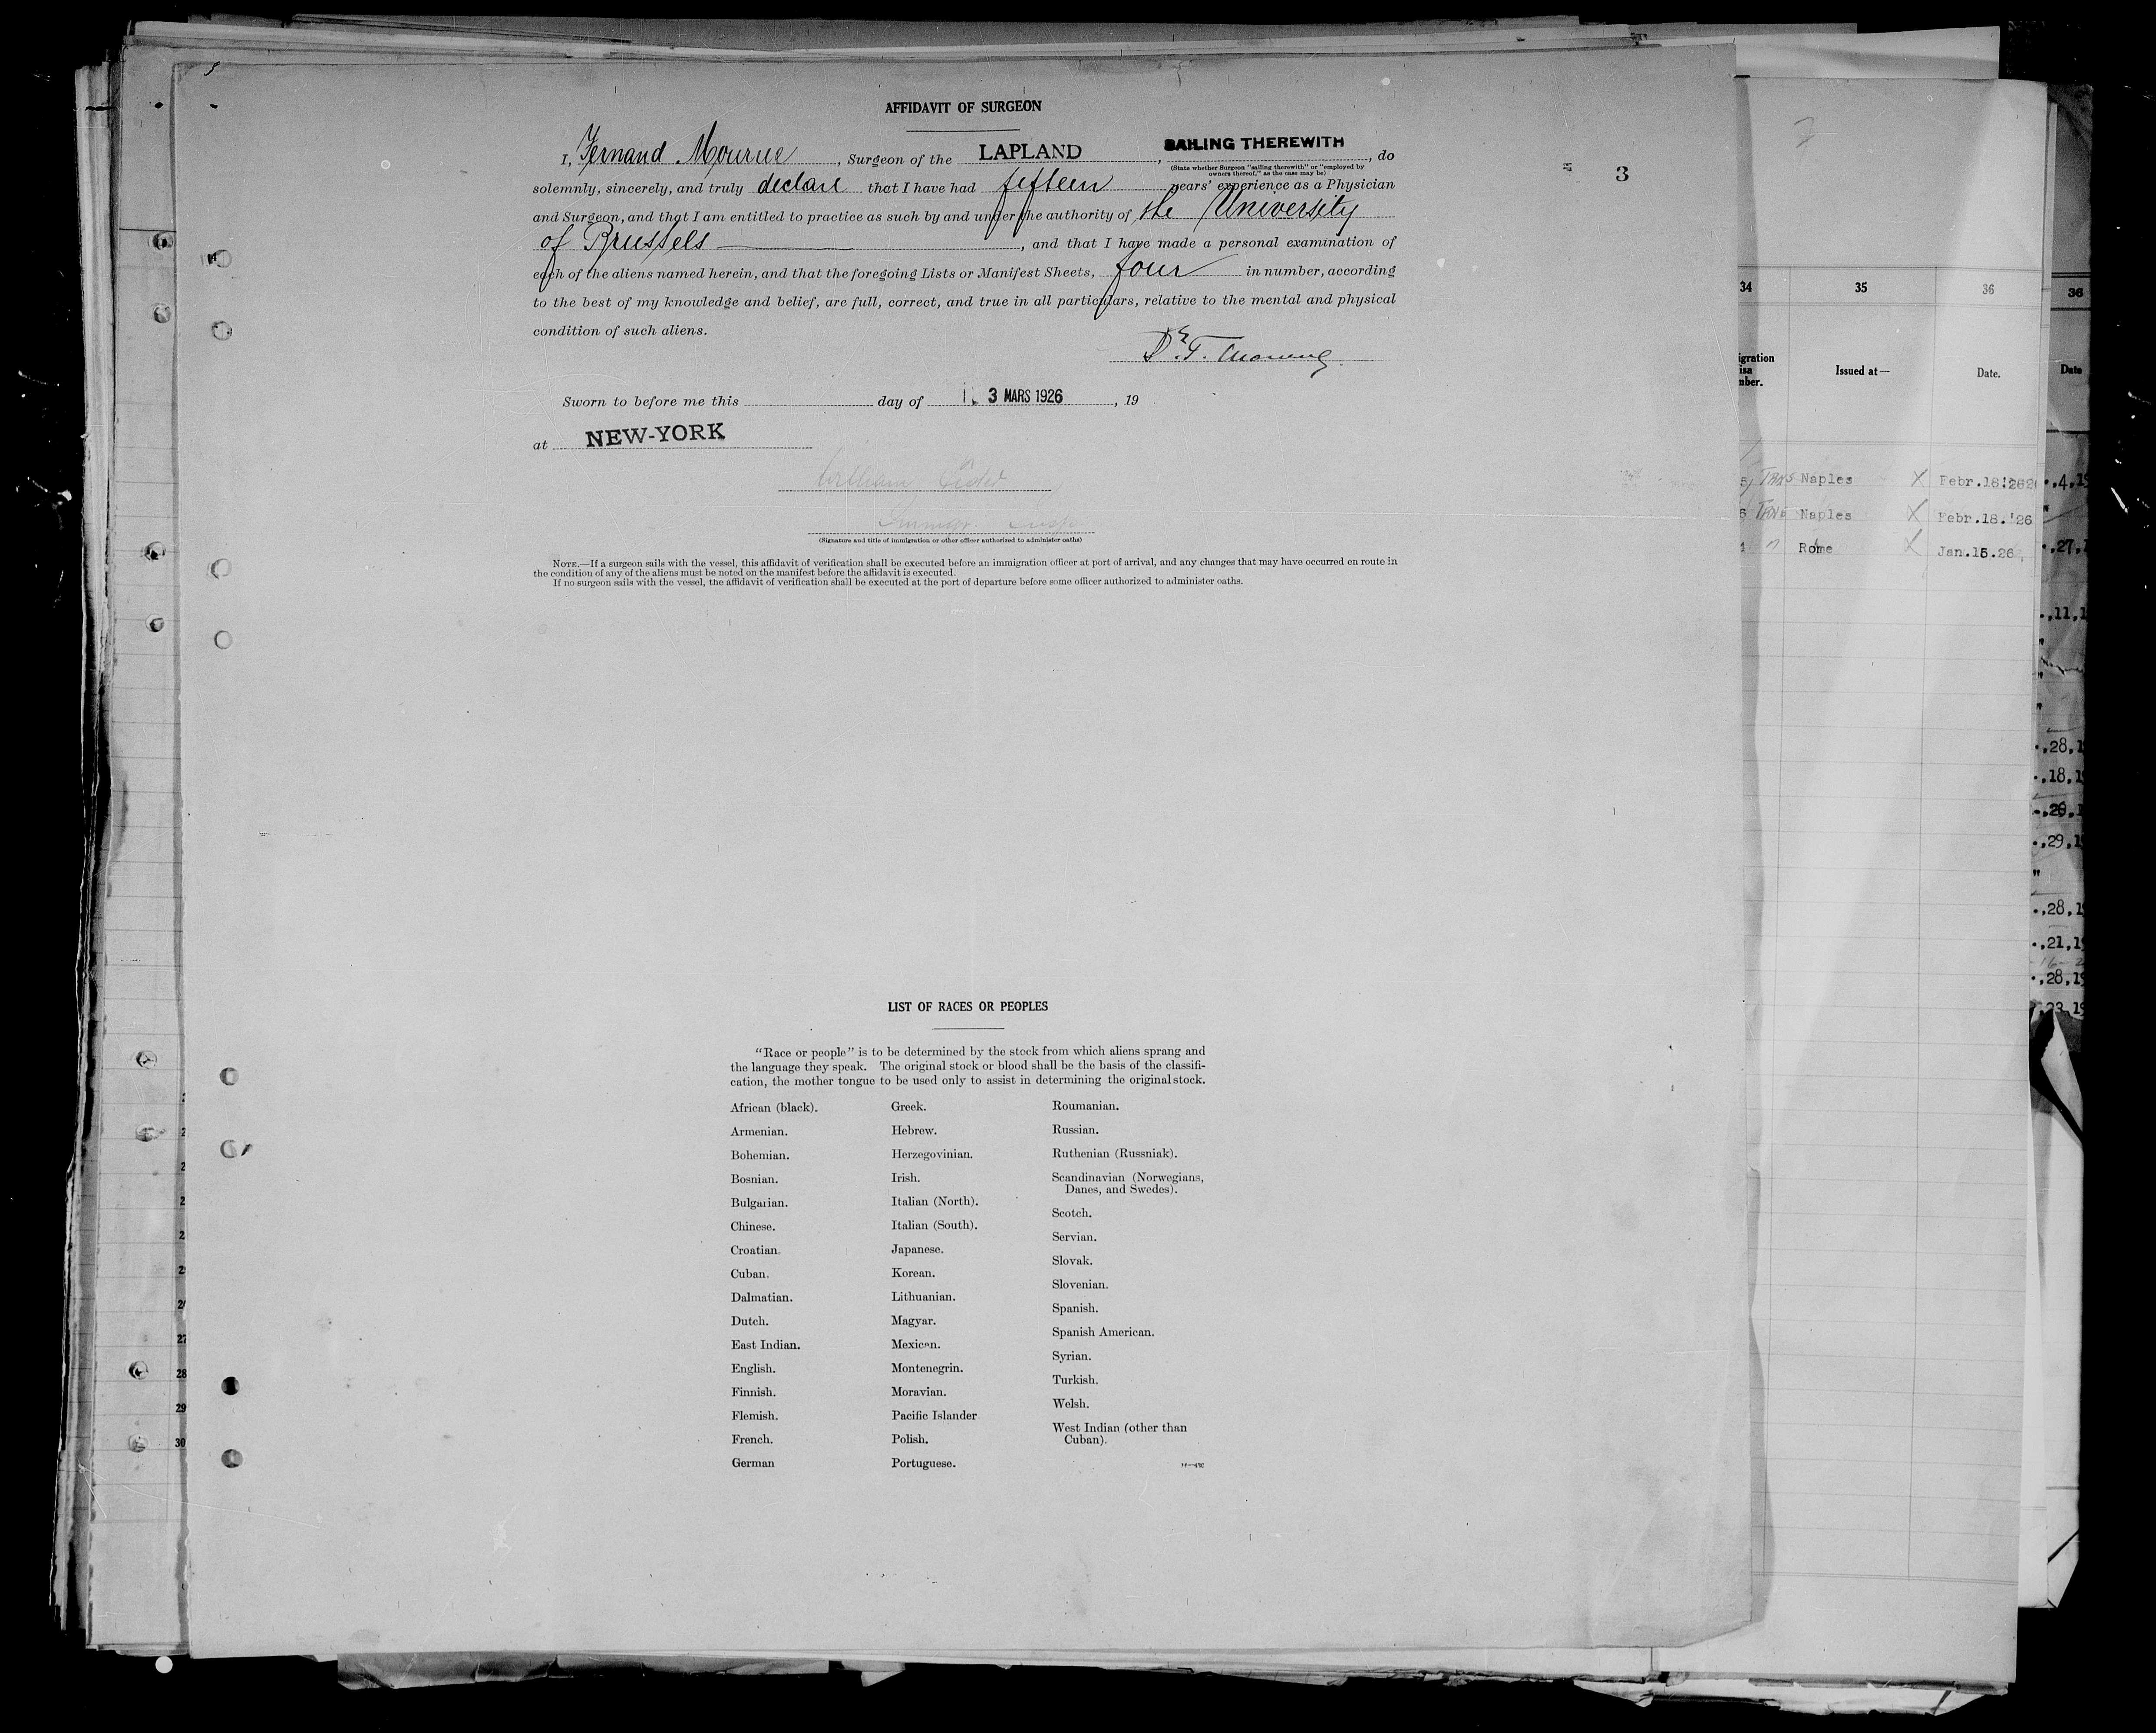 AFFIDAVIT OF SURGEON
I, Fernand Mourue, Surgeon of the LAPLAND, SAILING THEREWITH, do
(State whether Surgeon "sailing therewith" or "employed by
owners thereof," as the case may be)
3
solemnly, sincerely, and truly declare that I have had fifteen years' experience as a Physician
and Surgeon, and that I am entitled to practice as such by and under the authority of the University
of Brussels, and that I have made a personal examination of
each of the aliens named herein, and that the foregoing Lists or Manifest Sheets, four in number, according
to the best of my knowledge and belief, are full, correct, and true in all particulars, relative to the mental and physical
condition of such aliens.
Dr. F.
Sworn to before me this day of 3 MARS 1926, 19
at NEW-YORK
William
Immgr. Insp
(Signature and title of immigration or other officer authorized to administer oaths)
NOTE.—If a surgeon sails with the vessel, this affidavit of verification shall be executed before an immigration officer at port of arrival, and any changes that may have occurred en route in
the condition of any of the aliens must be noted on the manifest before the affidavit is executed.
If no surgeon sails with the vessel, the affidavit of verification shall be executed at the port of departure before some officer authorized to administer oaths.
LIST OF RACES OR PEOPLES
"Race or people" is to be determined by the stock from which aliens sprang and
the language they speak. The original stock or blood shall be the basis of the classifi-
cation, the mother tongue to be used only to assist in determining the original stock.
African (black).
Armenian.
Bohemian.
Bosnian.
Bulgarian.
Chinese.
Croatian.
Cuban.
Dalmatian.
Dutch.
East Indian.
English.
Finnish.
Flemish.
French.
German
Greek.
Hebrew.
Herzegovinian.
Irish.
Italian (North).
Italian (South).
Japanese.
Korean.
Lithuanian.
Magyar.
Mexican.
Montenegrin.
Moravian.
Pacific Islander
Polish.
Portuguese.
Roumanian.
Russian.
Ruthenian (Russniak).
Scandinavian (Norwegians,
Danes, and Swedes).
Scotch.
Servian.
Slovak.
Slovenian.
Spanish.
Spanish American.
Syrian.
Turkish.
Welsh.
West Indian (other than
Cuban).
34 35 36
igration
isa
mber.
Issued at—
Date.
Naples X Febr.18.'26
Naples X Febr.18.'26
Rome X Jan.15.26
36
Date
.,4,19
.,27,1
.,11,1
.,28,1
.,18,19
.,29,1
.,28,19
.,21,19
.,28,19
28
29
30
27